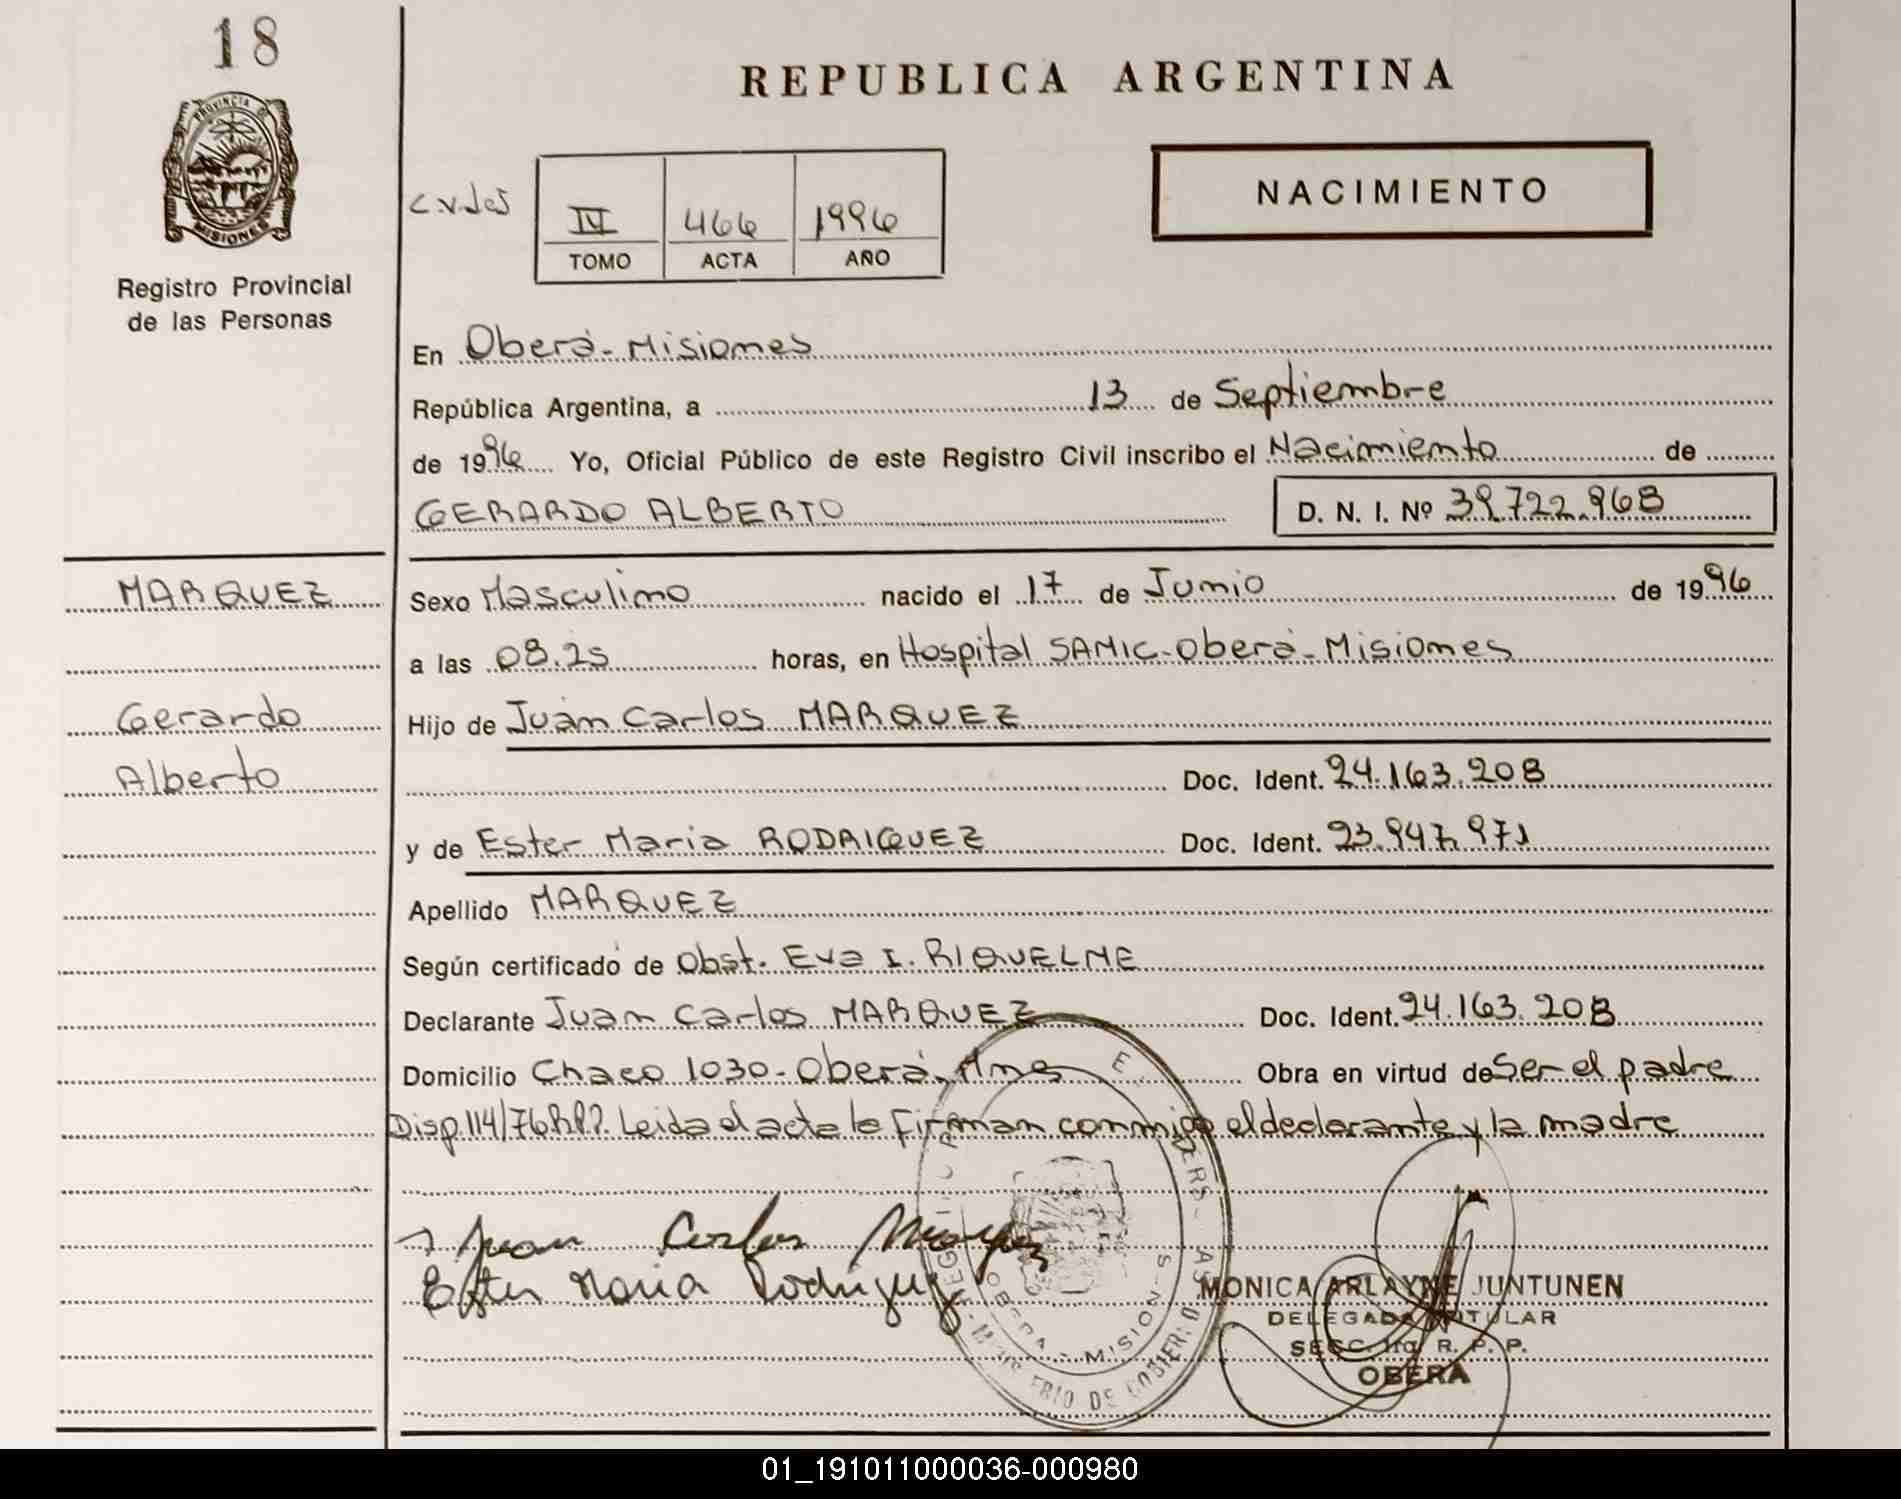 18
PROVINCIA DE
MISIONES
Registro Provincial
de las Personas
REPUBLICA ARGENTINA
NACIMIENTO
IV 466 1996
TOMO ACTA AÑO
En Oberá-Misiones
República Argentina, a 13 de Septiembre
de 1996 Yo, Oficial Público de este Registro Civil inscribo el Nacimiento de
GERARDO ALBERTO D. N. I. Nº 39.722.968
MARQUEZ
Gerardo
Alberto
Sexo Masculino nacido el 17 de Junio de 1996
a las 08.25 horas, en Hospital SAMIC-Oberá-Misiones
Hijo de Juan Carlos MARQUEZ
Doc. Ident. 24.163.208
y de Ester Maria RODRIGUEZ Doc. Ident. 23.947.971
Apellido MARQUEZ
Según certificado de Obst. Eva I. RIQUELME
Declarante Juan Carlos MARQUEZ Doc. Ident. 24.163.208
Domicilio Chaco 1030-Oberá-Mnes Obra en virtud de Ser el padre
Disp.114/76 Leida el acta la firman conmigo el declarante y la madre
Juan Carlos Marquez
Ester Maria Rodriguez
OBERA - MISIONES
MONICA ARLAYNE JUNTUNEN
DELEGADA TITULAR
SECC. 1ra. R. P. P.
OBERA
01_191011000036-000980